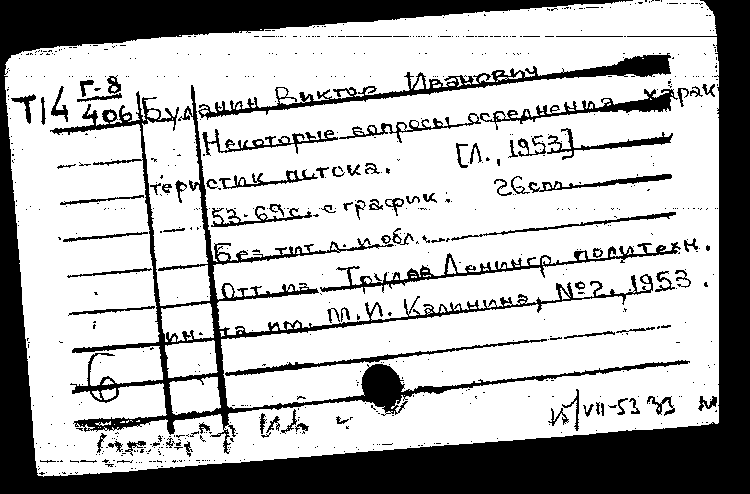 Т14 Г-8
406 Буланин, Виктор Иванович
Некоторые вопросы осреднения харак
теристик потока. [Л., 1953].
53-69 с. с график. 26 см.
Без тит. л. и обл.
Отт. из Трудов Ленингр. политехн.
ин-та им. М.И. Калинина, № 2, 1953.
б
VII-53